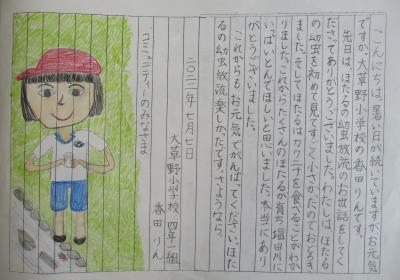 こんにちは。暑い日が続いていますがお元気
ですか。大草野小学校の香田りんです。
先日は、ほたるの幼虫放流のお世話をしてく
ださってありがとうございました。わたしは、ほたる
の幼虫を初めて見てすごく小さかったのでおどろき
ました。そしてほたるはカワニナを食べることがわか
りました。これからたくさんのほたるが育ち塩田川に
いっぱいとんでほしいと思いました。本当にあり
がとうございました。
これからもお元気でがんばってください。ほた
るの幼虫放流楽しかったです。さようなら。
二〇二二年七月七日
大草野小学校 四年一組
香田 りん
コミュニティーのみなさま